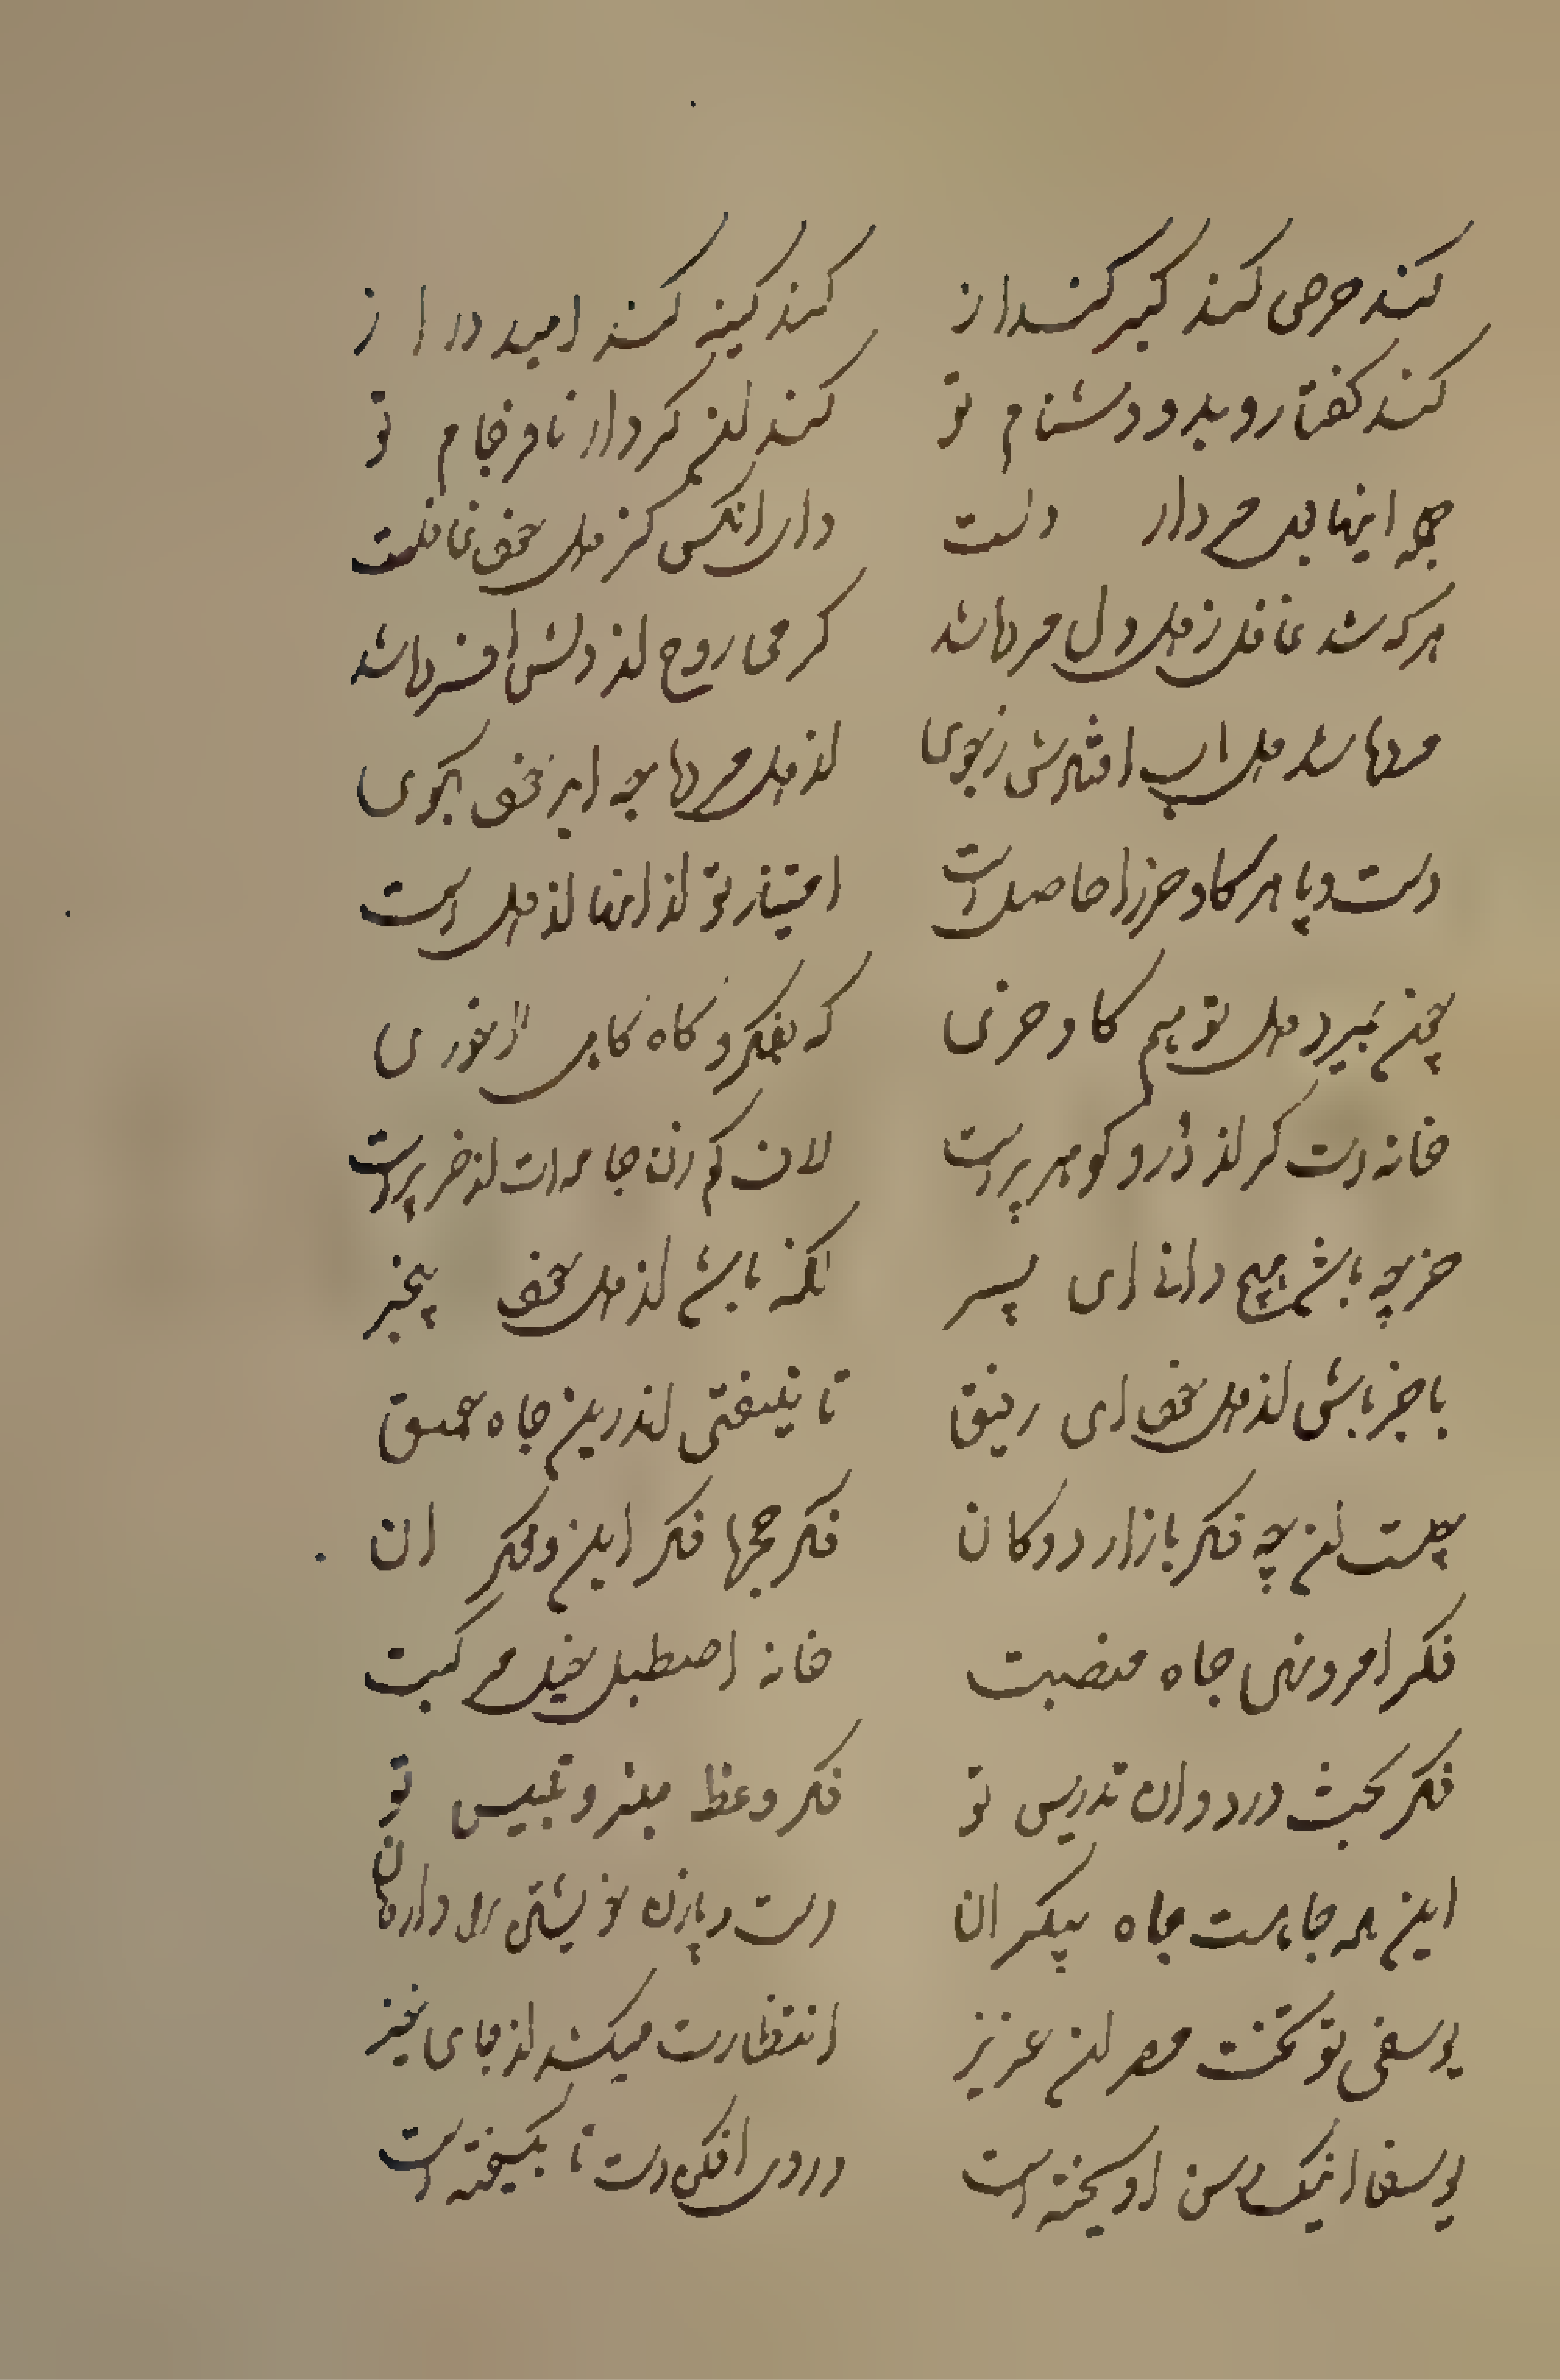 کند حرص کند کبر کند از کند کینه کند امید دراز
کند کفتار و بد و دشنام تو کند این کردار نافرجام تو
جمله اینها بوی مردار دلست وای انکس کز دل خود غافلست
هرکه شد غافل ز دل دل مرده شد کرمی روح از دلش افسرده شد
مرده شد دل اب افتادش ز جوی از دل مرده چه اید خود بکوی
دست و پا هر کاو خر را حاصل است امتیاز تو از اینها از دل است
چون بمیرد دل تو هم کاو خری که بفکر و کاه کاهی اخوری
خانه ات کر از زر و کوهر پر است لاف کم زن جامه ات از خر پر است
خر چه باشد هیچ دانی ای پسر انکه باشد از دل خود بیخبر
با خبر باش از دل خود ای رفیق تا نیفتی اندرین چاه عمیق
چیست این چه فکر بازار و دکان فکر حجره فکر این و فکر ان
فکر امر و نهی جاه منصبت خانه اصطبل خیل مرکبت
فکر بحث تدریس تو فکر وعظ منبر و تلبیس تو
این همه چاهست چاه بیکران دست و پا زن خویشتن را وارهان
یوسفی تو تخت مصر این عزیز انتظارت میکشد از جای خیز
یوسفا اینک رسن اویخته است در وی افکن دست تا نکسیخته است